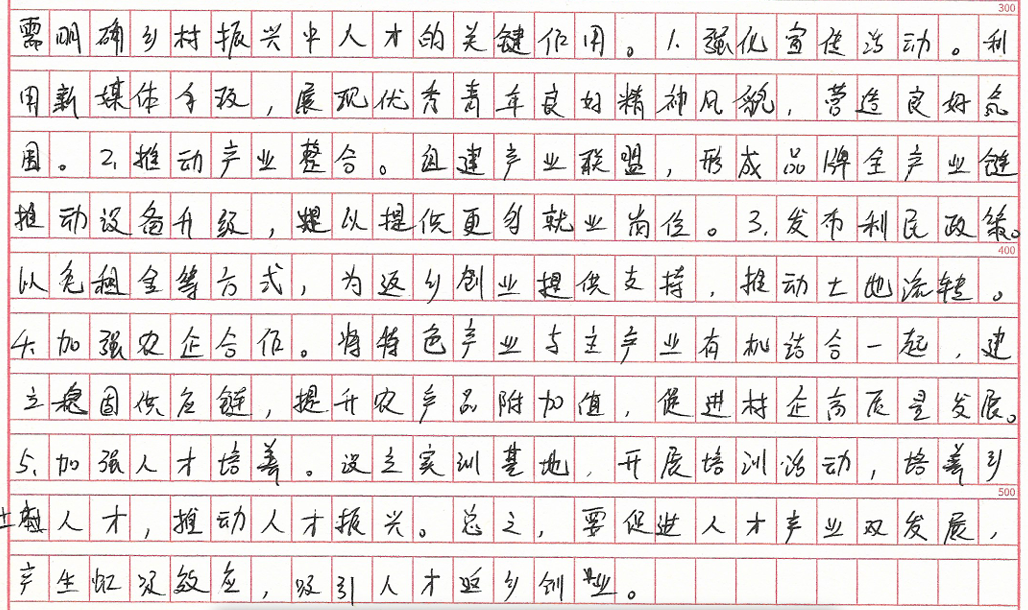 300
需明确乡村振兴中人才的关键作用。1.强化宣传活动。利
用新媒体手段，展现优秀青年良好精神风貌，营造良好氛
围。2.推动产业整合。组建产业联盟，形成品牌全产业链
推动设备升级，以提供更多就业岗位。3.发布利民政策。
400
以免租金等方式，为返乡创业提供支持，推动土地流转。
4.加强农企合作。将特色产业与主产业有机结合一起，建
立稳固供应链，提升农产品附加值，促进村企高质量发展。
5.加强人才培养。设立实训基地，开展培训活动，培养乡
500
土人才，推动人才振兴。总之，要促进人才产业双发展，
产生虹吸效应，吸引人才返乡创业。